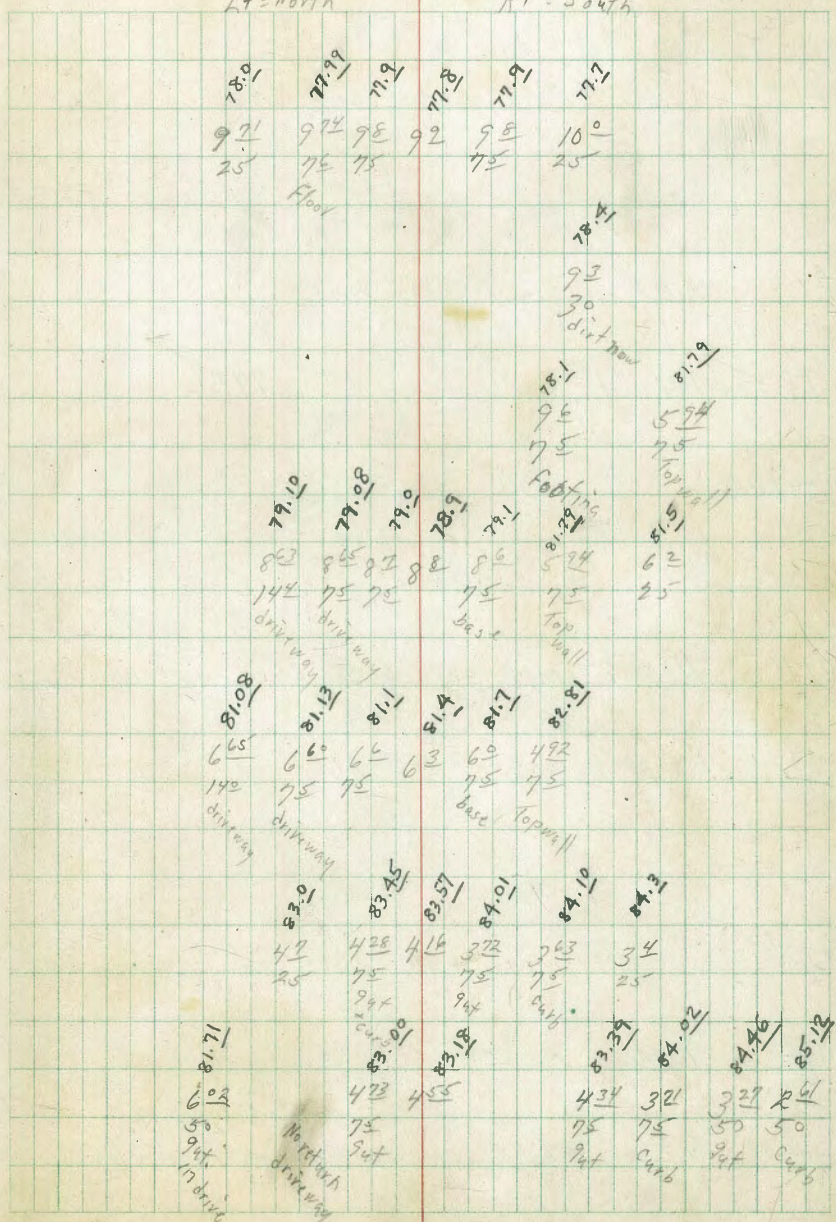 Lt = North Rt = South
78.0 77.99 77.9 77.8 77.9 77.7
9 71 9 74 9 8 9 9 9 8 10 0
25 76 75 75 25
Floor
78.4
9 3
30
dirt now
78.1 81.79
9 6 5 94
75 75
Footing Top wall
79.10 79.08 79.0 78.9 79.1 81.79 81.5
8 63 8 65 8 7 8 8 8 6 5 94 6 2
144 75 75 75 75 25
driveway driveway base Top wall
81.08 81.13 81.1 81.4 81.7 82.81
6 65 6 60 6 6 6 3 6 0 4 92
140 75 75 75 75
driveway driveway base Top wall
83.0 83.45 83.57 84.01 84.10 84.3
4 7 4 28 4 16 3 72 3 63 3 4
25 75 75 75 25
gut gut curb
curb
81.71 83.00 83.18 83.39 84.02 84.46 85.12
6 02 4 73 4 55 4 34 3 71 3 27 2 61
50 75 75 75 50 50
gut. No return gut gut curb gut curb
in drive driveway